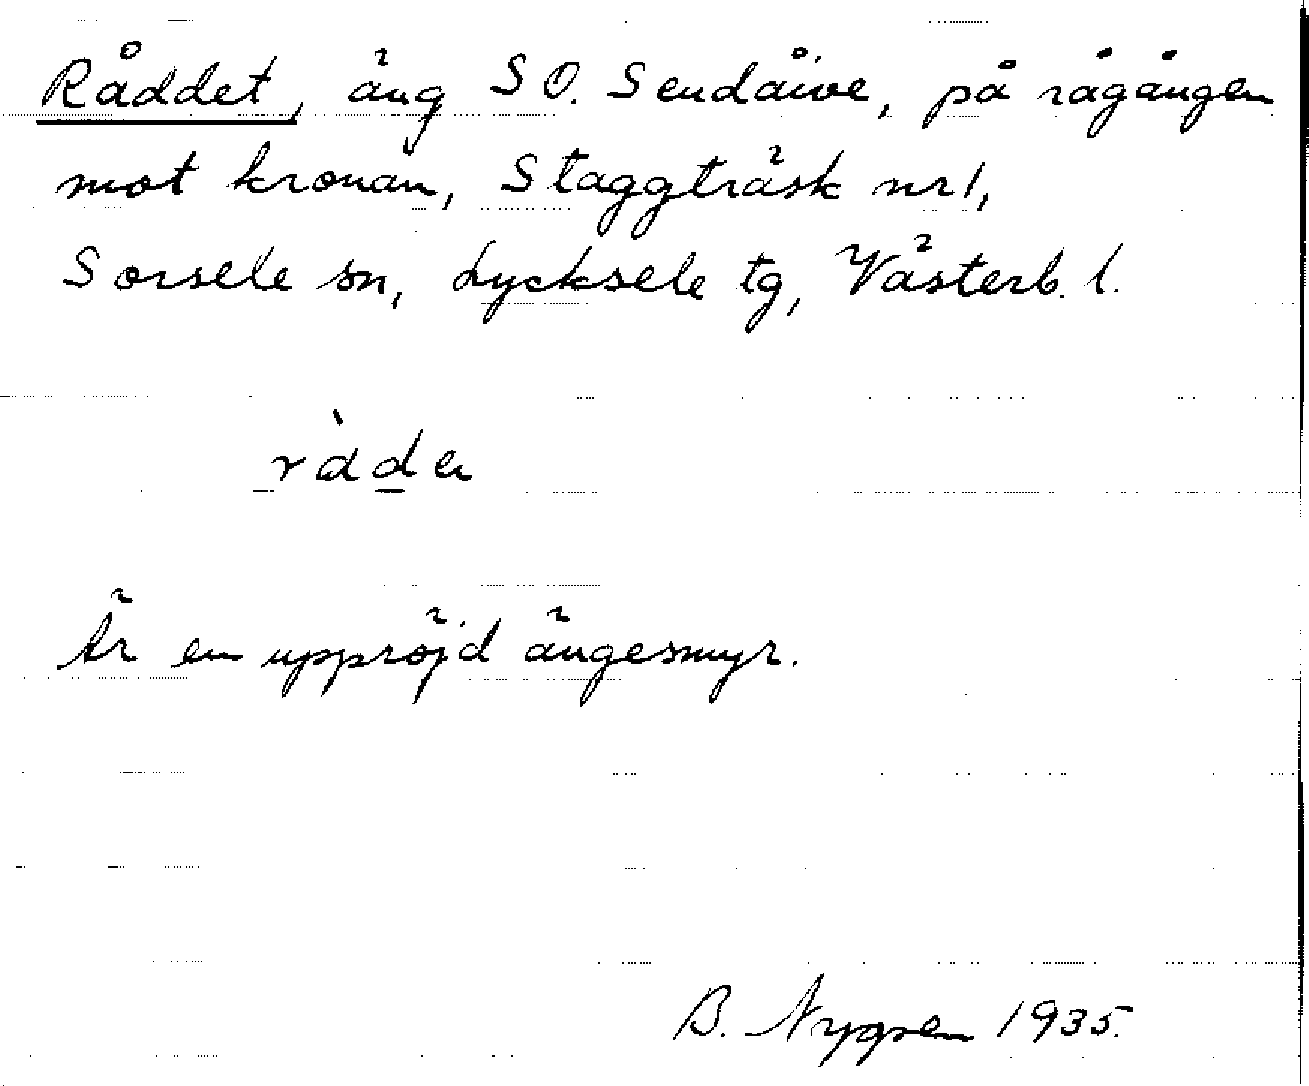 Råddet, äng SO. Sendåive, på rågången
mot kronan, Staggträsk nr 1,
Sorsele sn, Lycksele tg, Västerb. l.
ràd̲en
Är en uppröjd ängesmyr.
B. Nygren 1935.